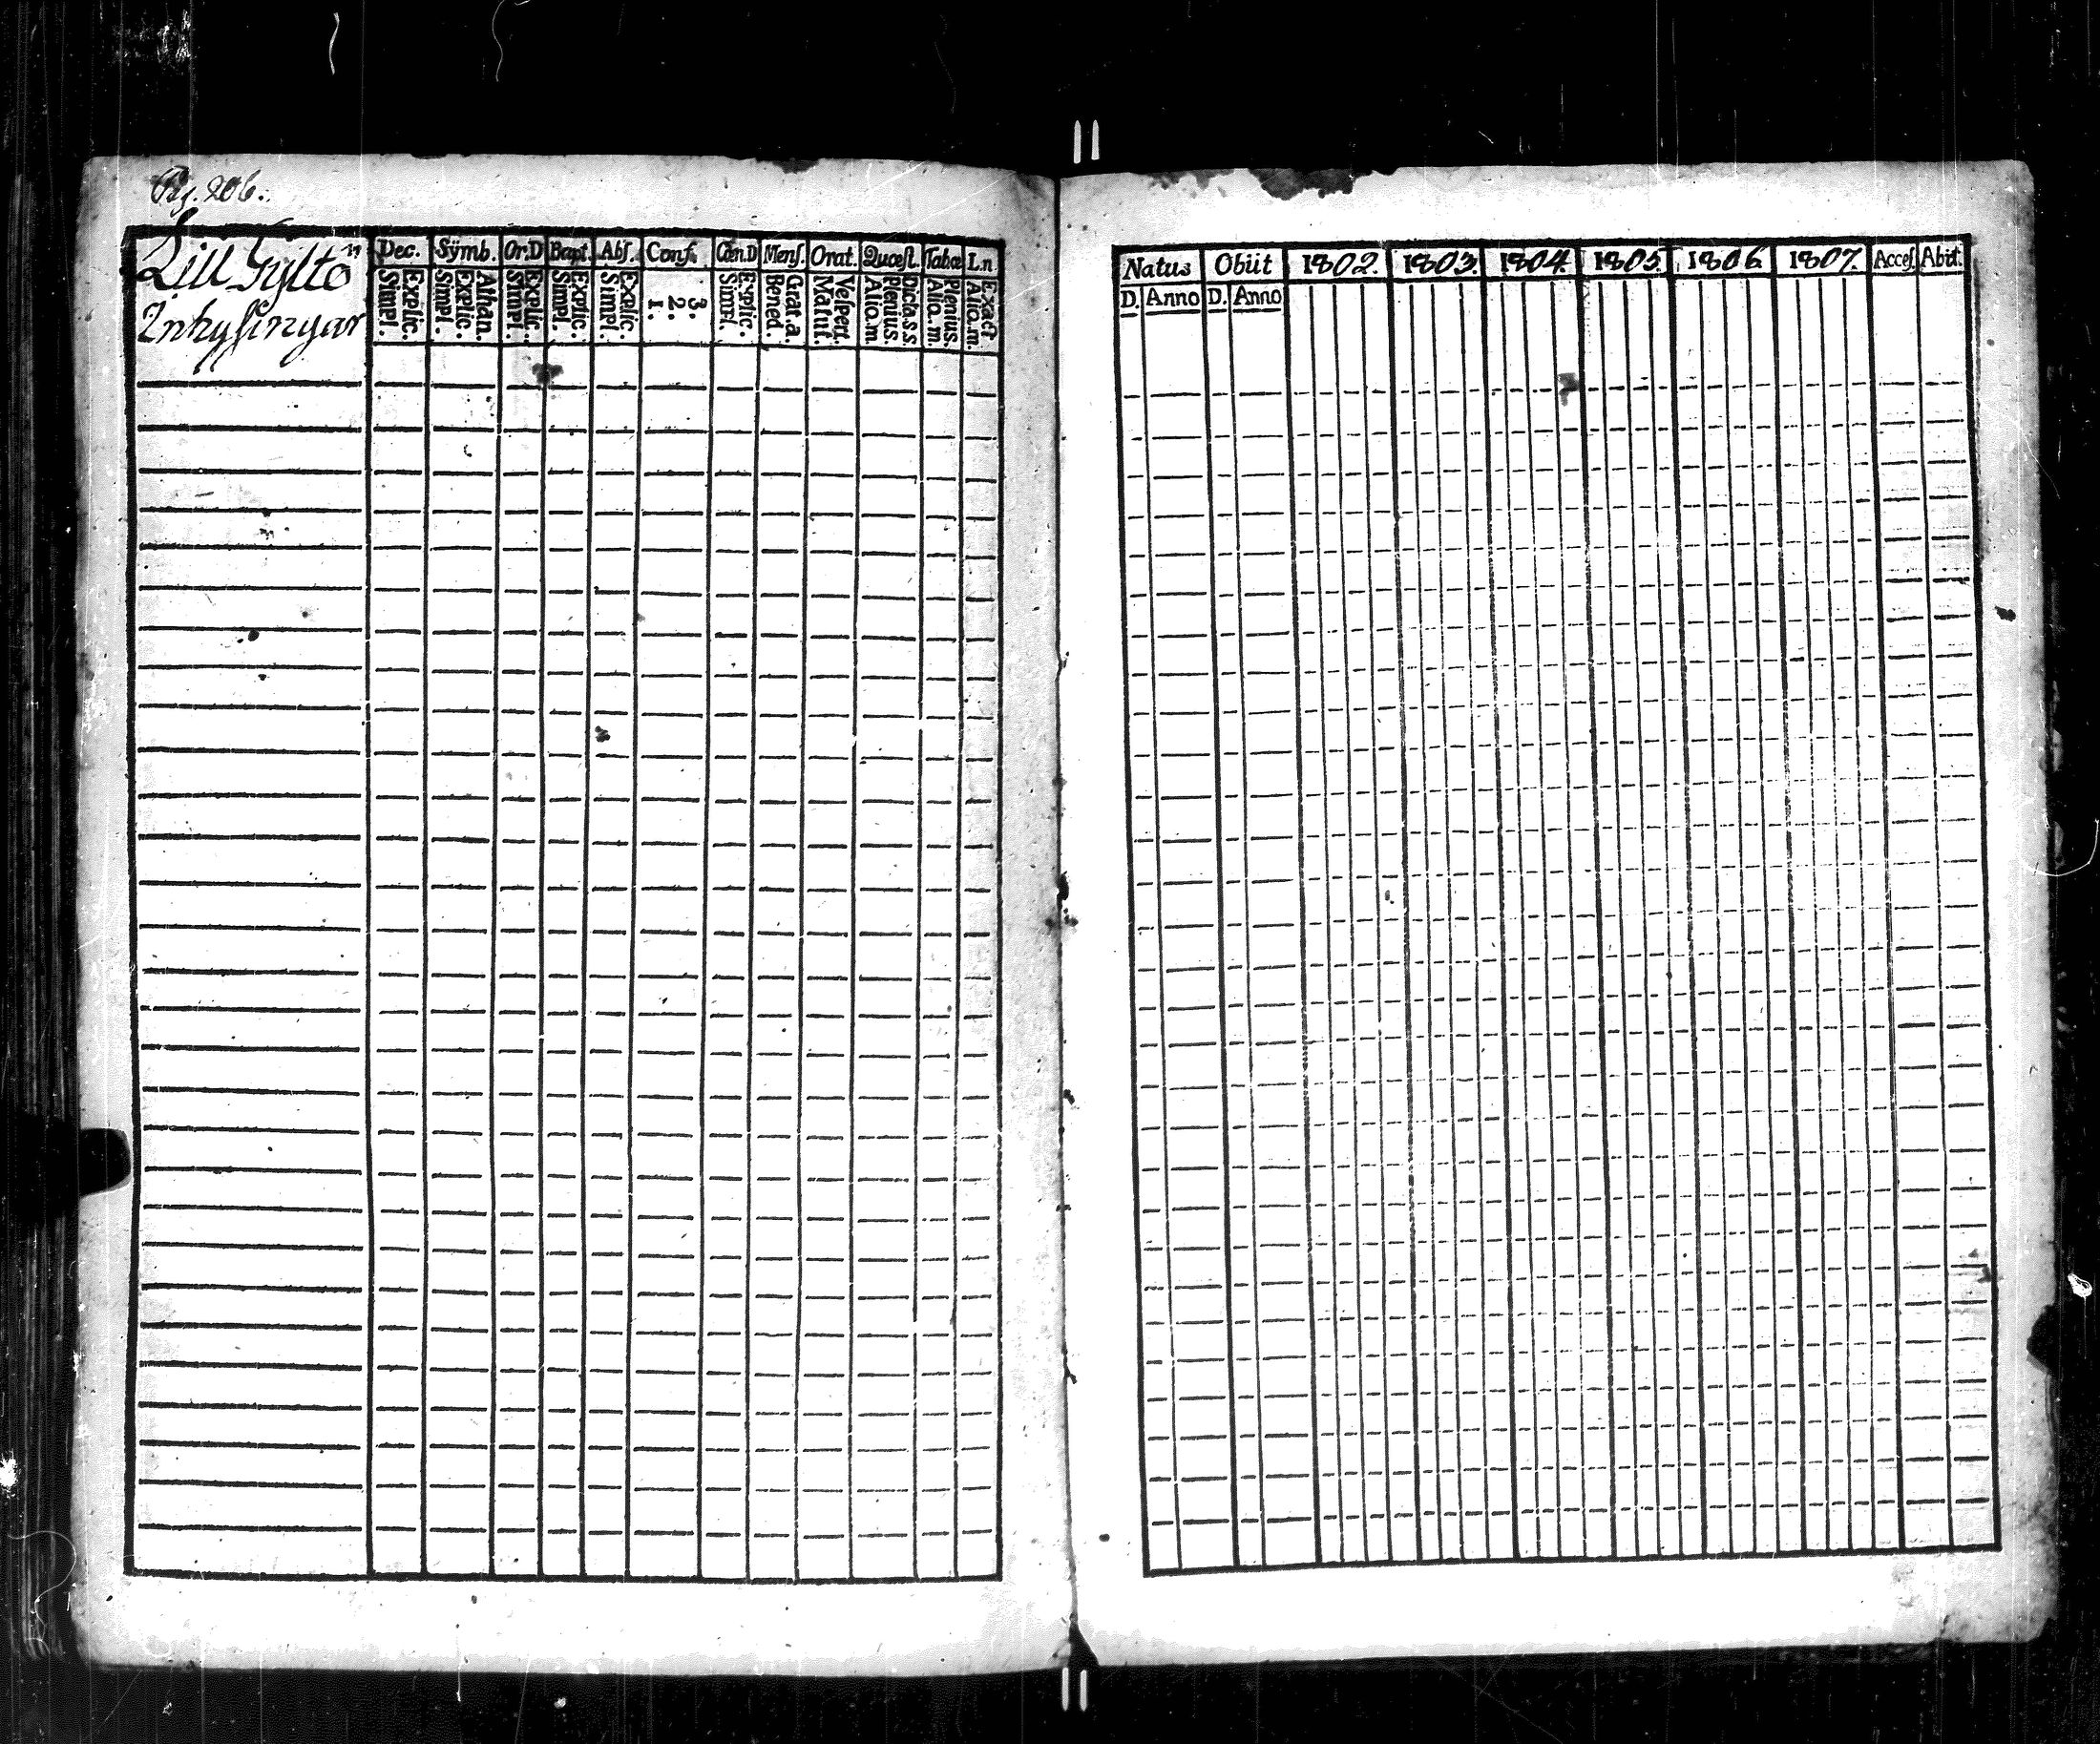 Pag. 206.
Lill Gyltö
Inhysingar
Dec. Sÿmb. Or.D Bapt. Abſ. Conf. Cœn.D Menſ. Orat. Quæſt. Tabæ L.n
Explic. Simpl.
Athan. Explic. Simpl.
Explic. Simpl.
Explic. Simpl.
Explic. Simpl.
3. 2. 1.
Explic. Simpl.
Grat.a. Bened.
Veſpert. Matut.
Dicta.s.s. Plenius. Aliq.m.
Plenius. Aliq.m.
Exact Aliq.m.
Natus Obiit 1802. 1803. 1804. 1805. 1806. 1807. Acceſ. Abiit.
D. Anno D. Anno